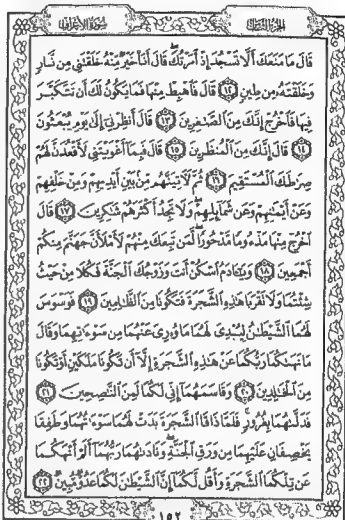 سورة الأعراف
الجزء الثامن
قَالَ مَا مَنَعَكَ أَلَّا تَسْجُدَ إِذْ أَمَرْتُكَ قَالَ أَنَا۠ خَيْرٌ مِّنْهُ خَلَقْتَنِى مِن نَّارٍ
وَخَلَقْتَهُۥ مِن طِينٍ ١٢ قَالَ فَٱهْبِطْ مِنْهَا فَمَا يَكُونُ لَكَ أَن تَتَكَبَّرَ
فِيهَا فَٱخْرُجْ إِنَّكَ مِنَ ٱلصَّٰغِرِينَ ١٣ قَالَ أَنظِرْنِىٓ إِلَىٰ يَوْمِ يُبْعَثُونَ
١٤ قَالَ إِنَّكَ مِنَ ٱلْمُنظَرِينَ ١٥ قَالَ فَبِمَآ أَغْوَيْتَنِى لَأَقْعُدَنَّ لَهُمْ
صِرَٰطَكَ ٱلْمُسْتَقِيمَ ١٦ ثُمَّ لَءَاتِيَنَّهُم مِّنۢ بَيْنِ أَيْدِيهِمْ وَمِنْ خَلْفِهِمْ
وَعَنْ أَيْمَٰنِهِمْ وَعَن شَمَآئِلِهِمْ وَلَا تَجِدُ أَكْثَرَهُمْ شَٰكِرِينَ ١٧ قَالَ
ٱخْرُجْ مِنْهَا مَذْءُومًا مَّدْحُورًا لَّمَن تَبِعَكَ مِنْهُمْ لَأَمْلَأَنَّ جَهَنَّمَ مِنكُمْ
أَجْمَعِينَ ١٨ وَيَٰٓـَٔادَمُ ٱسْكُنْ أَنتَ وَزَوْجُكَ ٱلْجَنَّةَ فَكُلَا مِنْ حَيْثُ
شِئْتُمَا وَلَا تَقْرَبَا هَٰذِهِ ٱلشَّجَرَةَ فَتَكُونَا مِنَ ٱلظَّٰلِمِينَ ١٩ فَوَسْوَسَ
لَهُمَا ٱلشَّيْطَٰنُ لِيُبْدِىَ لَهُمَا مَا وُۥرِىَ عَنْهُمَا مِن سَوْءَٰتِهِمَا وَقَالَ
مَا نَهَىٰكُمَا رَبُّكُمَا عَنْ هَٰذِهِ ٱلشَّجَرَةِ إِلَّآ أَن تَكُونَا مَلَكَيْنِ أَوْ تَكُونَا
مِنَ ٱلْخَٰلِدِينَ ٢٠ وَقَاسَمَهُمَآ إِنِّى لَكُمَا لَمِنَ ٱلنَّٰصِحِينَ ٢١
فَدَلَّىٰهُمَا بِغُرُورٍ فَلَمَّا ذَاقَا ٱلشَّجَرَةَ بَدَتْ لَهُمَا سَوْءَٰتُهُمَا وَطَفِقَا
يَخْصِفَانِ عَلَيْهِمَا مِن وَرَقِ ٱلْجَنَّةِ وَنَادَىٰهُمَا رَبُّهُمَآ أَلَمْ أَنْهَكُمَا
عَن تِلْكُمَا ٱلشَّجَرَةِ وَأَقُل لَّكُمَآ إِنَّ ٱلشَّيْطَٰنَ لَكُمَا عَدُوٌّ مُّبِينٌ ٢٢
١٥٢